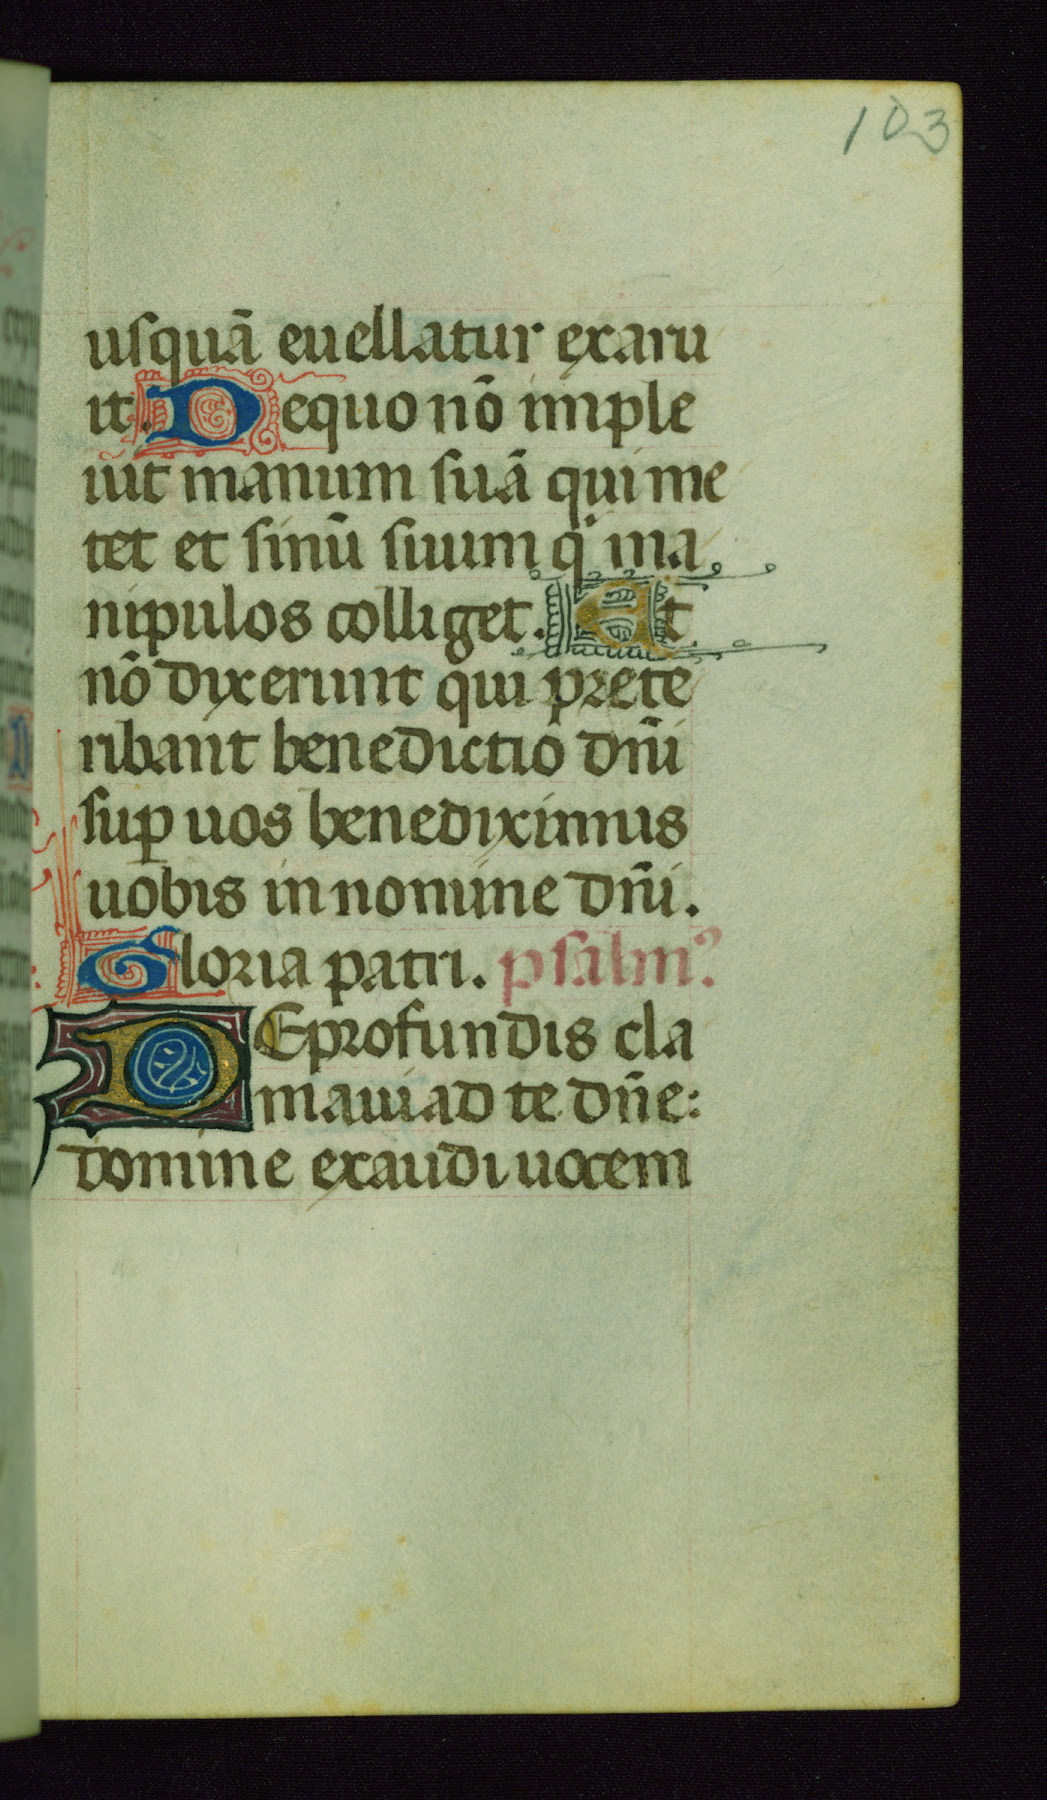 103
usquā euellatur exaru
it. De quo nō imple
iuit manum suā qui me
tet et sinū suum q̇ ma
nipulos colliget. Et
nō dixerunt qui prete
ribant benedictio dn̄i
sup̱ uos benediximus
uobis in nomine dn̄i.
Gloria patri. psalmꝰ
DE profundis cla
maui ad te dn̄e:
domine exaudi uocem